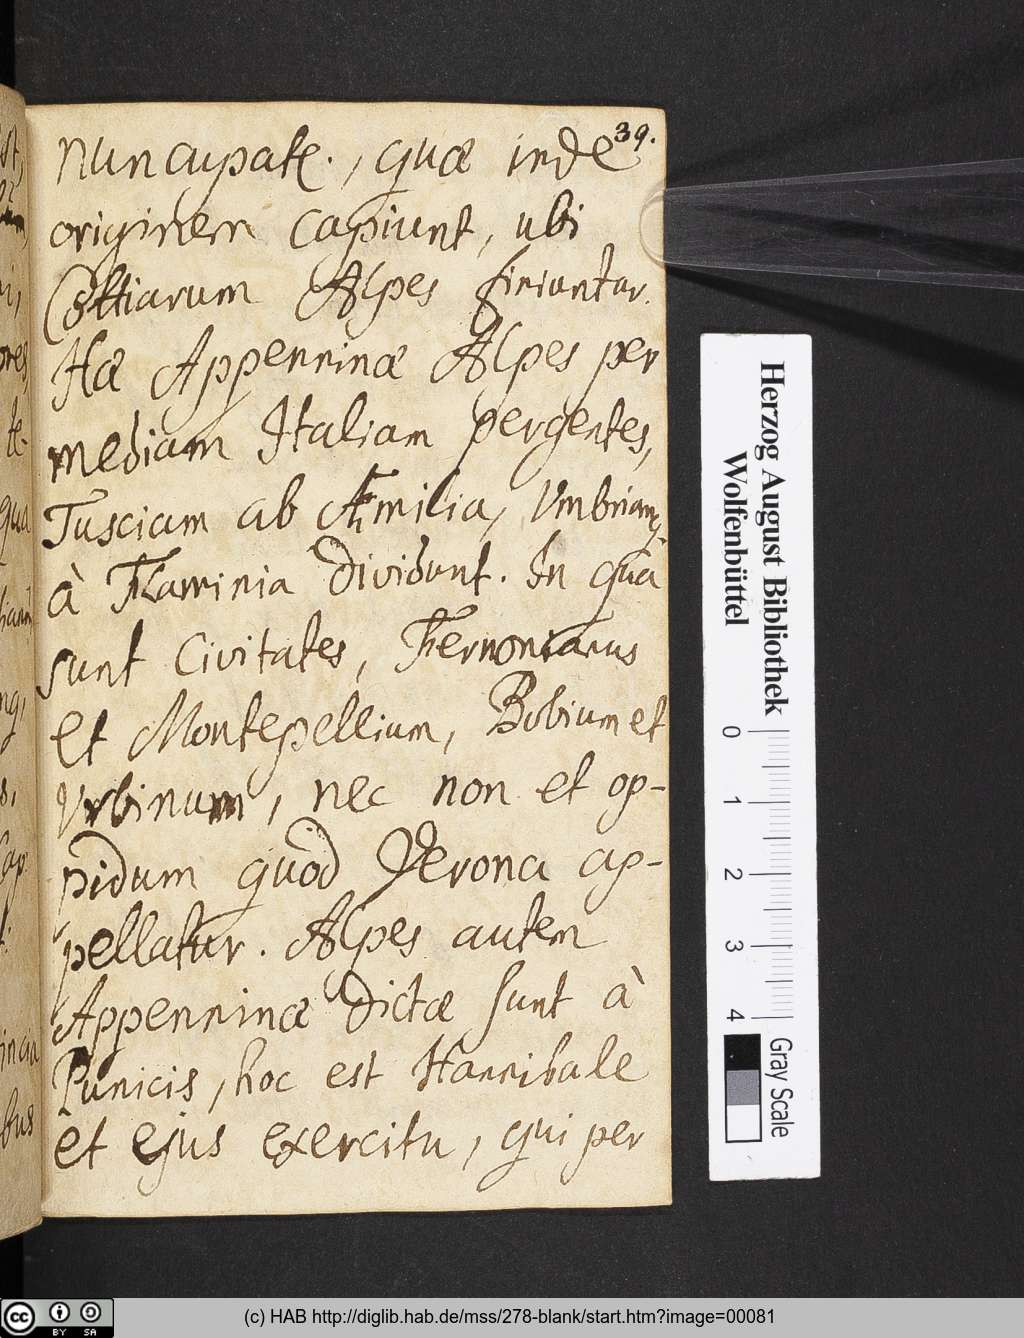 39.
nuncupatę., quæ inde
originem capiunt, ubi
Cottiarum Alpes finiuntur.
Hæ Appenninæ Alpes per
mediam Italiam pergentes,
Tusciam ab Æmilia, Vmbriamq
à Flaminia dividunt. In quà
sunt Civitates, Fernonianus
et Montepellium, Bobium et
Vrbinum, nec non et op-
pidum quod Verona ap-
pellatur. Alpes autem
Appenninæ dictæ sunt à
Punicis, hoc est Hannibale
et ejus exercitu, qui per
Herzog August Bibliothek
Wolfenbüttel
0 1 2 3 4
Gray Scale
cc BY SA
(c) HAB http://diglib.hab.de/mss/278-blank/start.htm?image=00081